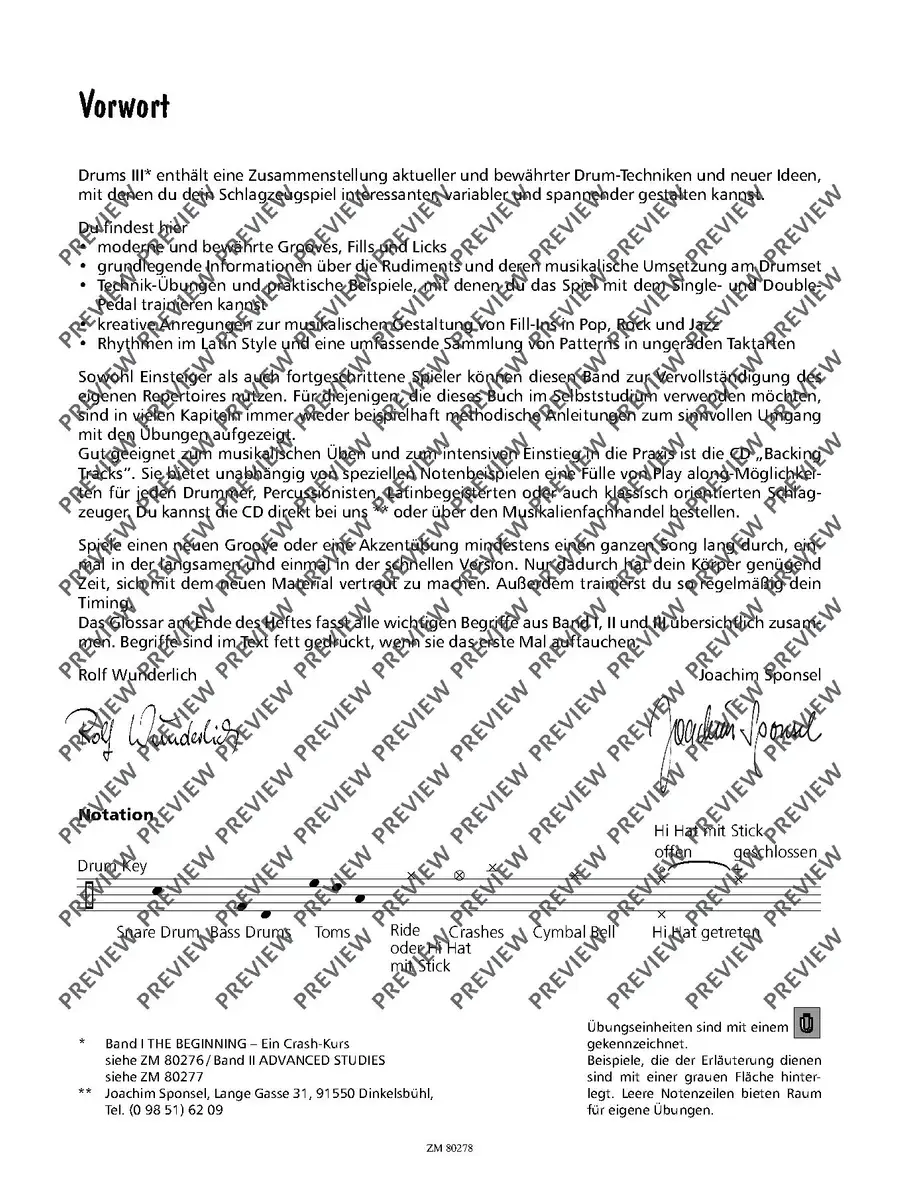 Vorwort
Drums III* enthält eine Zusammenstellung aktueller und bewährter Drum-Techniken und neuer Ideen,
mit denen du dein Schlagzeugspiel interessanter, variabler und spannender gestalten kannst.
Du findest hier
• moderne und bewährte Grooves, Fills und Licks
• grundlegende Informationen über die Rudiments und deren musikalische Umsetzung am Drumset
• Technik-Übungen und praktische Beispiele, mit denen du das Spiel mit dem Single- und Double-
Pedal trainieren kannst
• kreative Anregungen zur musikalischen Gestaltung von Fill-Ins in Pop, Rock und Jazz
• Rhythmen im Latin Style und eine umfassende Sammlung von Patterns in ungeraden Taktarten
Sowohl Einsteiger als auch fortgeschrittene Spieler können diesen Band zur Vervollständigung des
eigenen Repertoires nutzen. Für diejenigen, die dieses Buch im Selbststudium verwenden möchten,
sind in vielen Kapiteln immer wieder beispielhaft methodische Anleitungen zum sinnvollen Umgang
mit den Übungen aufgezeigt.
Gut geeignet zum musikalischen Üben und zum intensiven Einstieg in die Praxis ist die CD „Backing
Tracks“. Sie bietet unabhängig von speziellen Notenbeispielen eine Fülle von Play along-Möglichkei-
ten für jeden Drummer, Percussionisten, Latinbegeisterten oder auch klassisch orientierten Schlag-
zeuger. Du kannst die CD direkt bei uns ** oder über den Musikalienfachhandel bestellen.
Spiele einen neuen Groove oder eine Akzentübung mindestens einen ganzen Song lang durch, ein-
mal in der langsamen und einmal in der schnellen Version. Nur dadurch hat dein Körper genügend
Zeit, sich mit dem neuen Material vertraut zu machen. Außerdem trainierst du so regelmäßig dein
Timing.
Das Glossar am Ende des Heftes fasst alle wichtigen Begriffe aus Band I, II und III übersichtlich zusam-
men. Begriffe sind im Text fett gedruckt, wenn sie das erste Mal auftauchen.
Rolf Wunderlich Joachim Sponsel
Rolf Wunderlich Joachim Sponsel
Notation
Hi Hat mit Stick
Drum Key offen geschlossen
Snare Drum Bass Drums Toms Ride Crashes Cymbal Bell Hi Hat getreten
oder Hi Hat
mit Stick
* Band I THE BEGINNING – Ein Crash-Kurs
siehe ZM 80276 / Band II ADVANCED STUDIES
siehe ZM 80277
** Joachim Sponsel, Lange Gasse 31, 91550 Dinkelsbühl,
Tel. (0 98 51) 62 09
Übungseinheiten sind mit einem
gekennzeichnet.
Beispiele, die der Erläuterung dienen
sind mit einer grauen Fläche hinter-
legt. Leere Notenzeilen bieten Raum
für eigene Übungen.
ZM 80278
PREVIEW PREVIEW PREVIEW PREVIEW PREVIEW PREVIEW PREVIEW PREVIEW PREVIEW PREVIEW